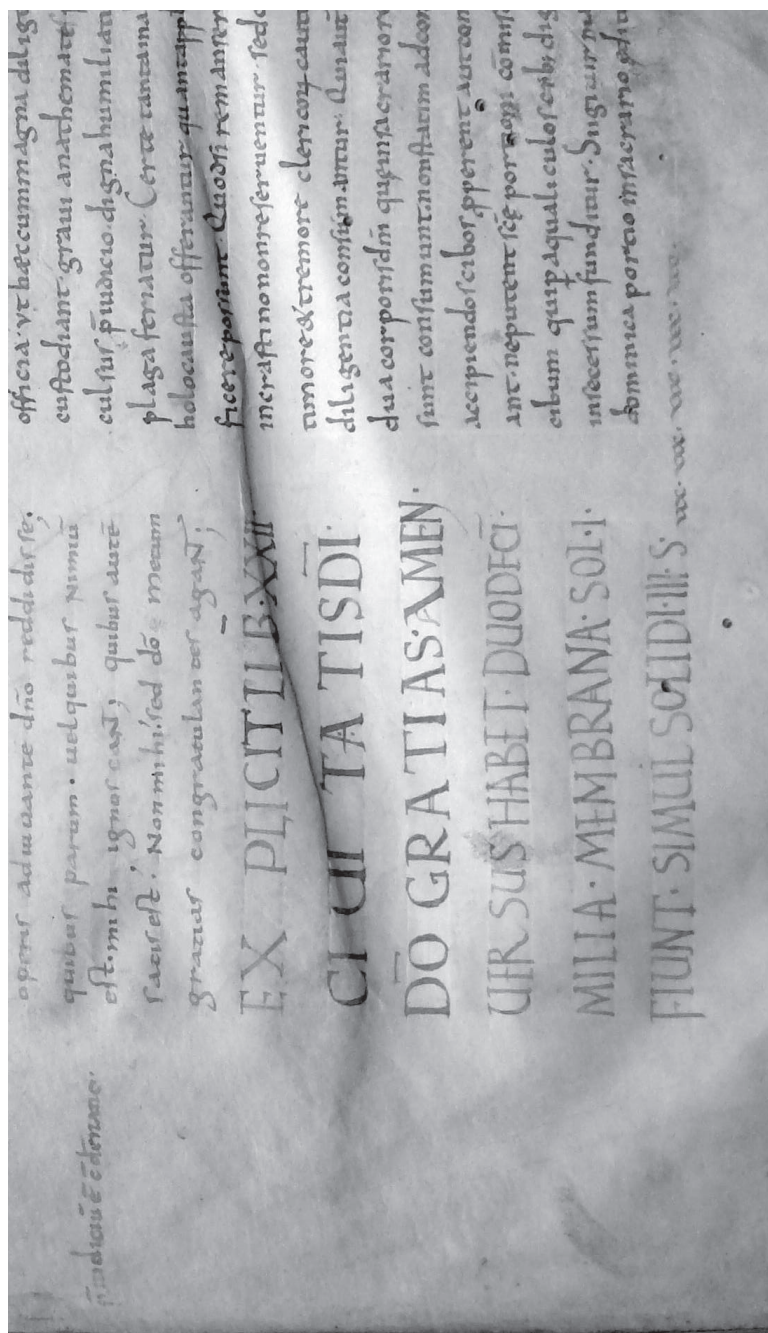 operis adiuuante dn̄o reddidisse.
quibus parum. uel quibus nimiū
est. mihi ignoscant; quibus autē
satis est. Non mihi sed dō mecum
gratias congratulantes agant;
EXPLICIT LIB·XXII·
CIUITATIS DĪ·
DŌ GRATIAS·AMEN·
UERSUS HABET·DUODECĪ·
MILIA·MEMBRANA·SOL·I·
FIUNT·SIMUL SOLIDI·III·S·
officia. ut haec cum magna dilig
custodiant graui anathemate
culsus p̄ iudicio. digna humiliati
plaga feriatur. Certe tanta ina
holocausta offerantur quanta
ficere possunt. Quod si remanser
in crastino non reseruentur. sed c
timore & tremore clericorum caut
diligentia consumantur. Qui aut̄
dua corporis dn̄i que in sacrario r
sunt consumunt. non statim ad com
accipiendos cibos pperent aut com
ant. ne putent scę portioni cōmis
cibum qui p aqualiculos cibi dig
in secessum funditur. Si igitur
dominica portio in sacrario edit